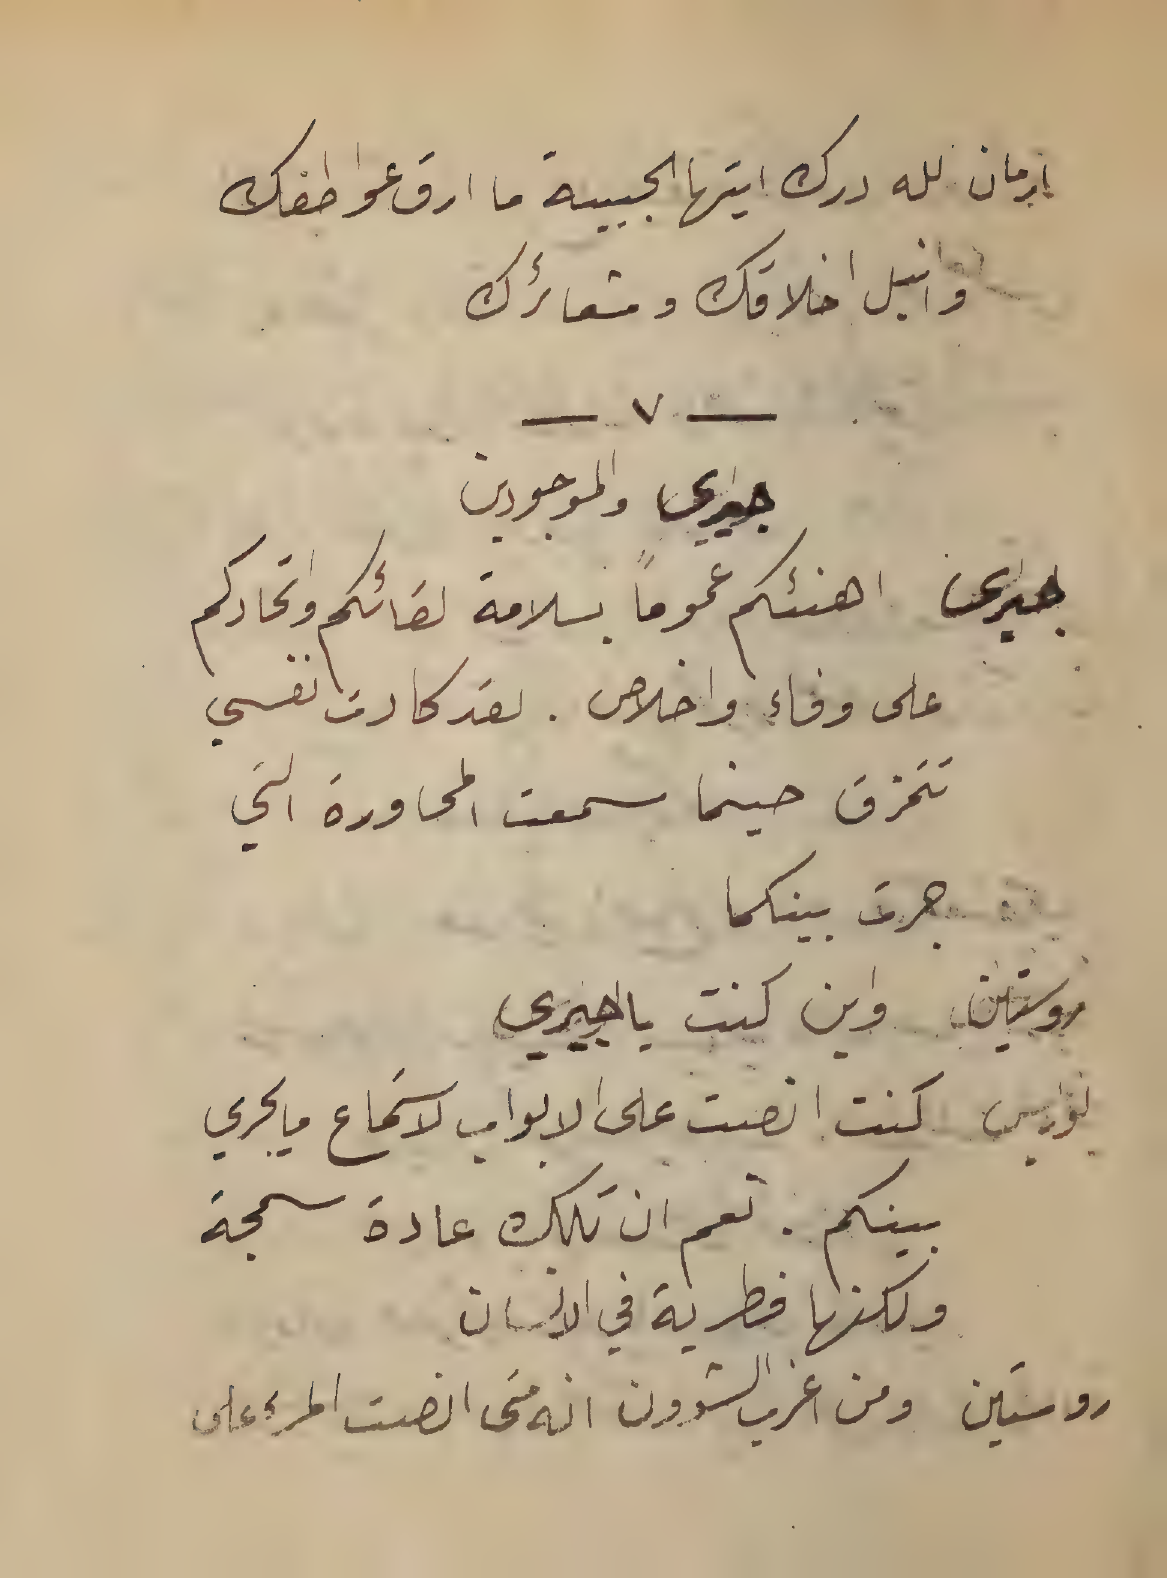 ارمان لله درك ايتها الحبيبة ما ارق عواطفك
وانبل اخلاقك ومشعائرك
— ٧ —
جيري والموجودين
جيري اهنئكم عموماً بسلامة لقائكم واتحادكم
على وفاء واخلاص . لقد كادت نفسي
تتمزق حينما سمعت المحاورة التي
جرت بينكما
روستين واين كنت يا جيري
كنت انصت على الابواب لاستماع ما يجري
بينكم . نعم ان تلك عادة سمجة
ولكنها فطرية في الانسان
روستين ومن اغرب الشوون انه متى انصت المرء على